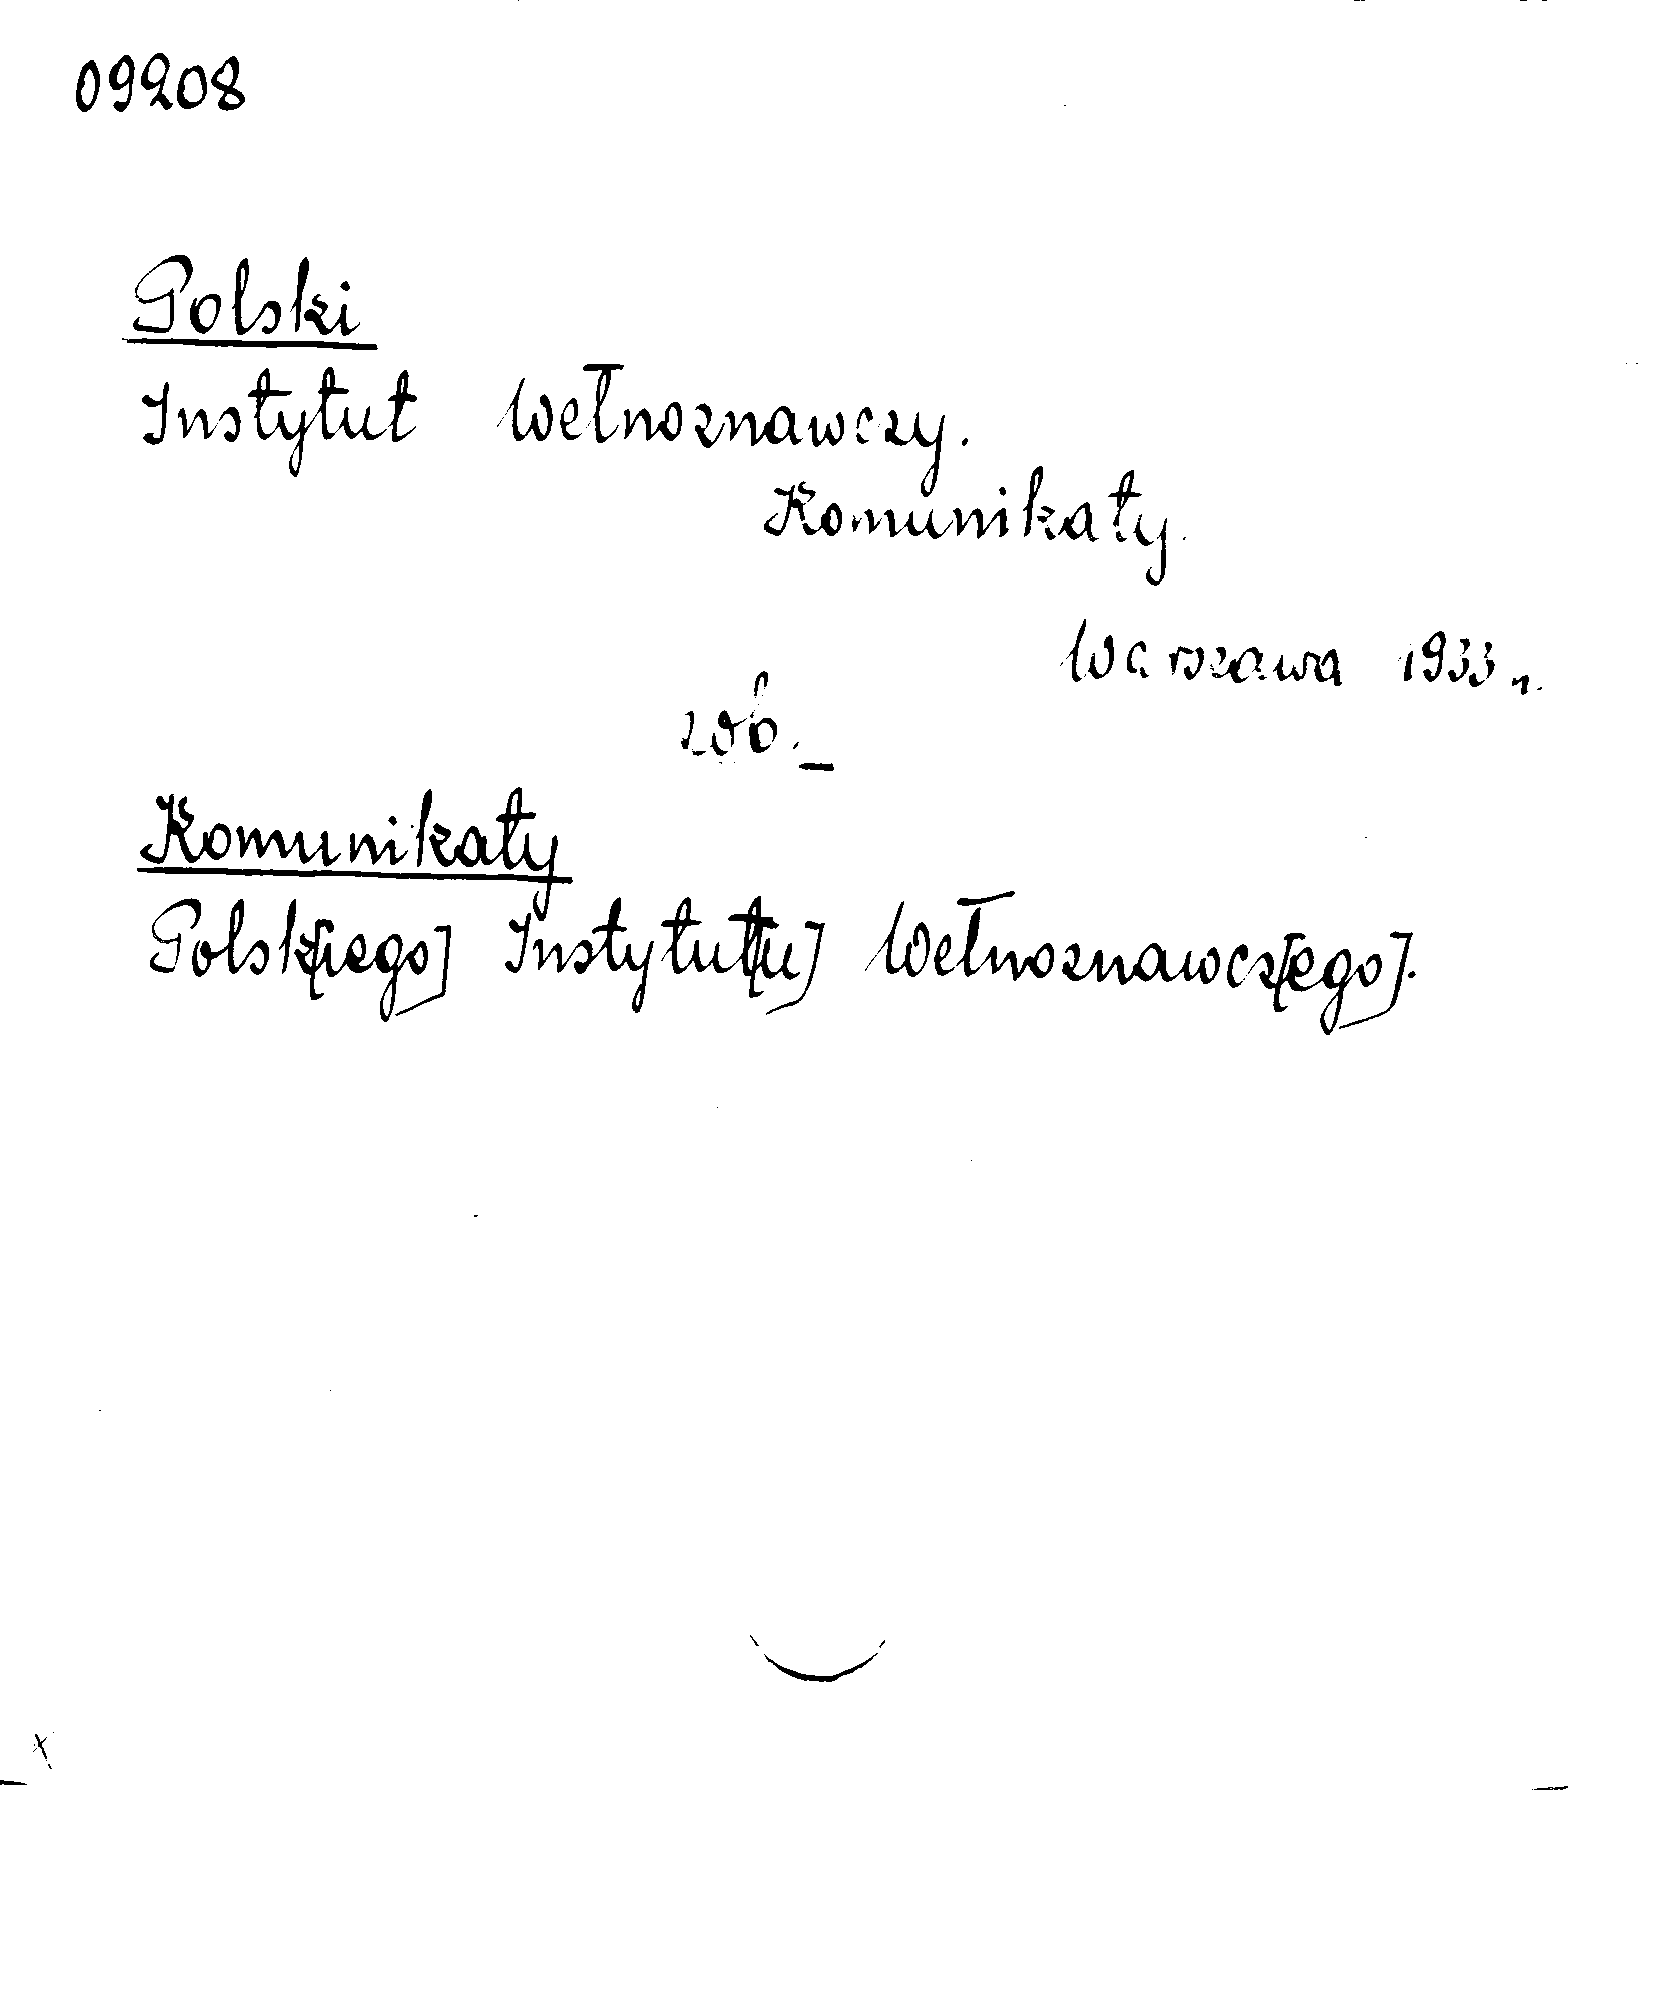 09208
Polski
Instytut Wełnoznawczy.
Komunikaty.
Warszawa 1933 r.
zob. _
Komunikaty
Polsk[iego] Instytut[u] Wełnoznawcz[ego].
x